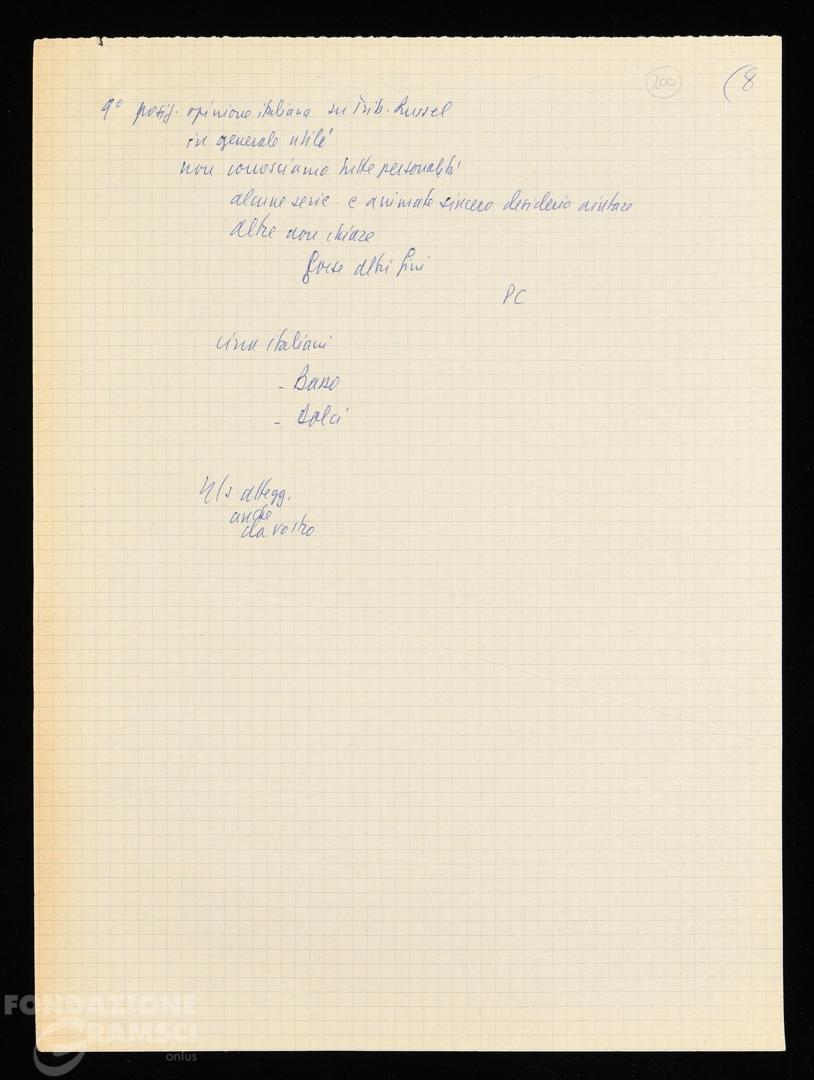 100
(8
9° posiz. opinione italiana su Trib. Russel
in generale utile
non conosciamo tutte personalità
alcune serie e animate sincero desiderio aiutare
altre non chiare
forse altri fini
PC
circa italiani
- Basso
- Dolci
attegg.
anche
da vostro
FONDAZIONE
GRAMSCI
onlus